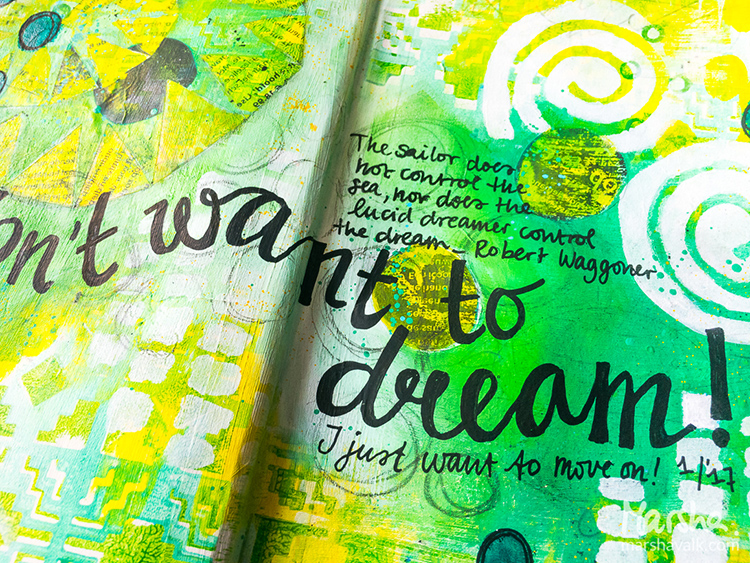 The sailor does
not control the
sea, nor does the
lucid dreamer control
the dream - Robert Waggoner
on't want to
dream!
I just want to move on! 1/'17
Marsha
marshavalk.com